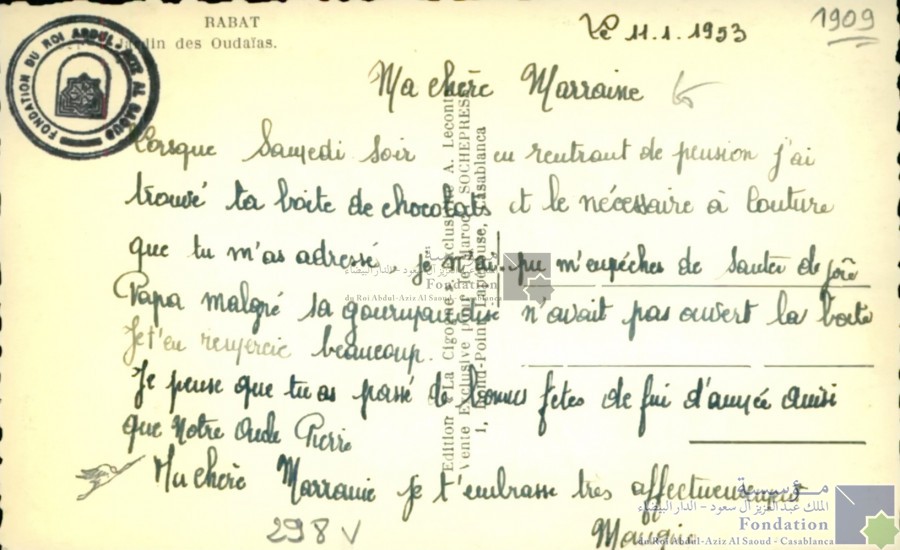 RABAT
Jardin des Oudaïas.
FONDATION DU ROI ABDUL-AZIZ AL SAOUD
Le 11.1.1953
1909
Ma chère Marraine
Lorsque Samedi soir en rentrant de pension j'ai
trouvé ta boite de chocolats et le nécessaire à couture
que tu m'as adressé, je n'ai pu m'empéches de sauter de joie
Papa malgré sa gourmandise n'avait pas ouvert la boite
Je t'en remercie beaucoup.
Je pense que tu as passé de bonnes fetes de fin d'année ainsi
que Notre Oncle Pierre
Ma chère Marraine je t'embrasse tres affectueusement
298 V
Edition « La Cigogne » Exclusive A. Lecont
Vente Exclusive pour le Maroc SOCHEPRESS
1, Rond-Point Lapérouse, Casablanca
مؤسسة
الملك عبد العزيز آل سعود - الدار البيضاء
Fondation
du Roi Abdul-Aziz Al Saoud - Casablanca
مؤسسة
الملك عبد العزيز آل سعود - الدار البيضاء
Fondation
du Roi Abdul-Aziz Al Saoud - Casablanca